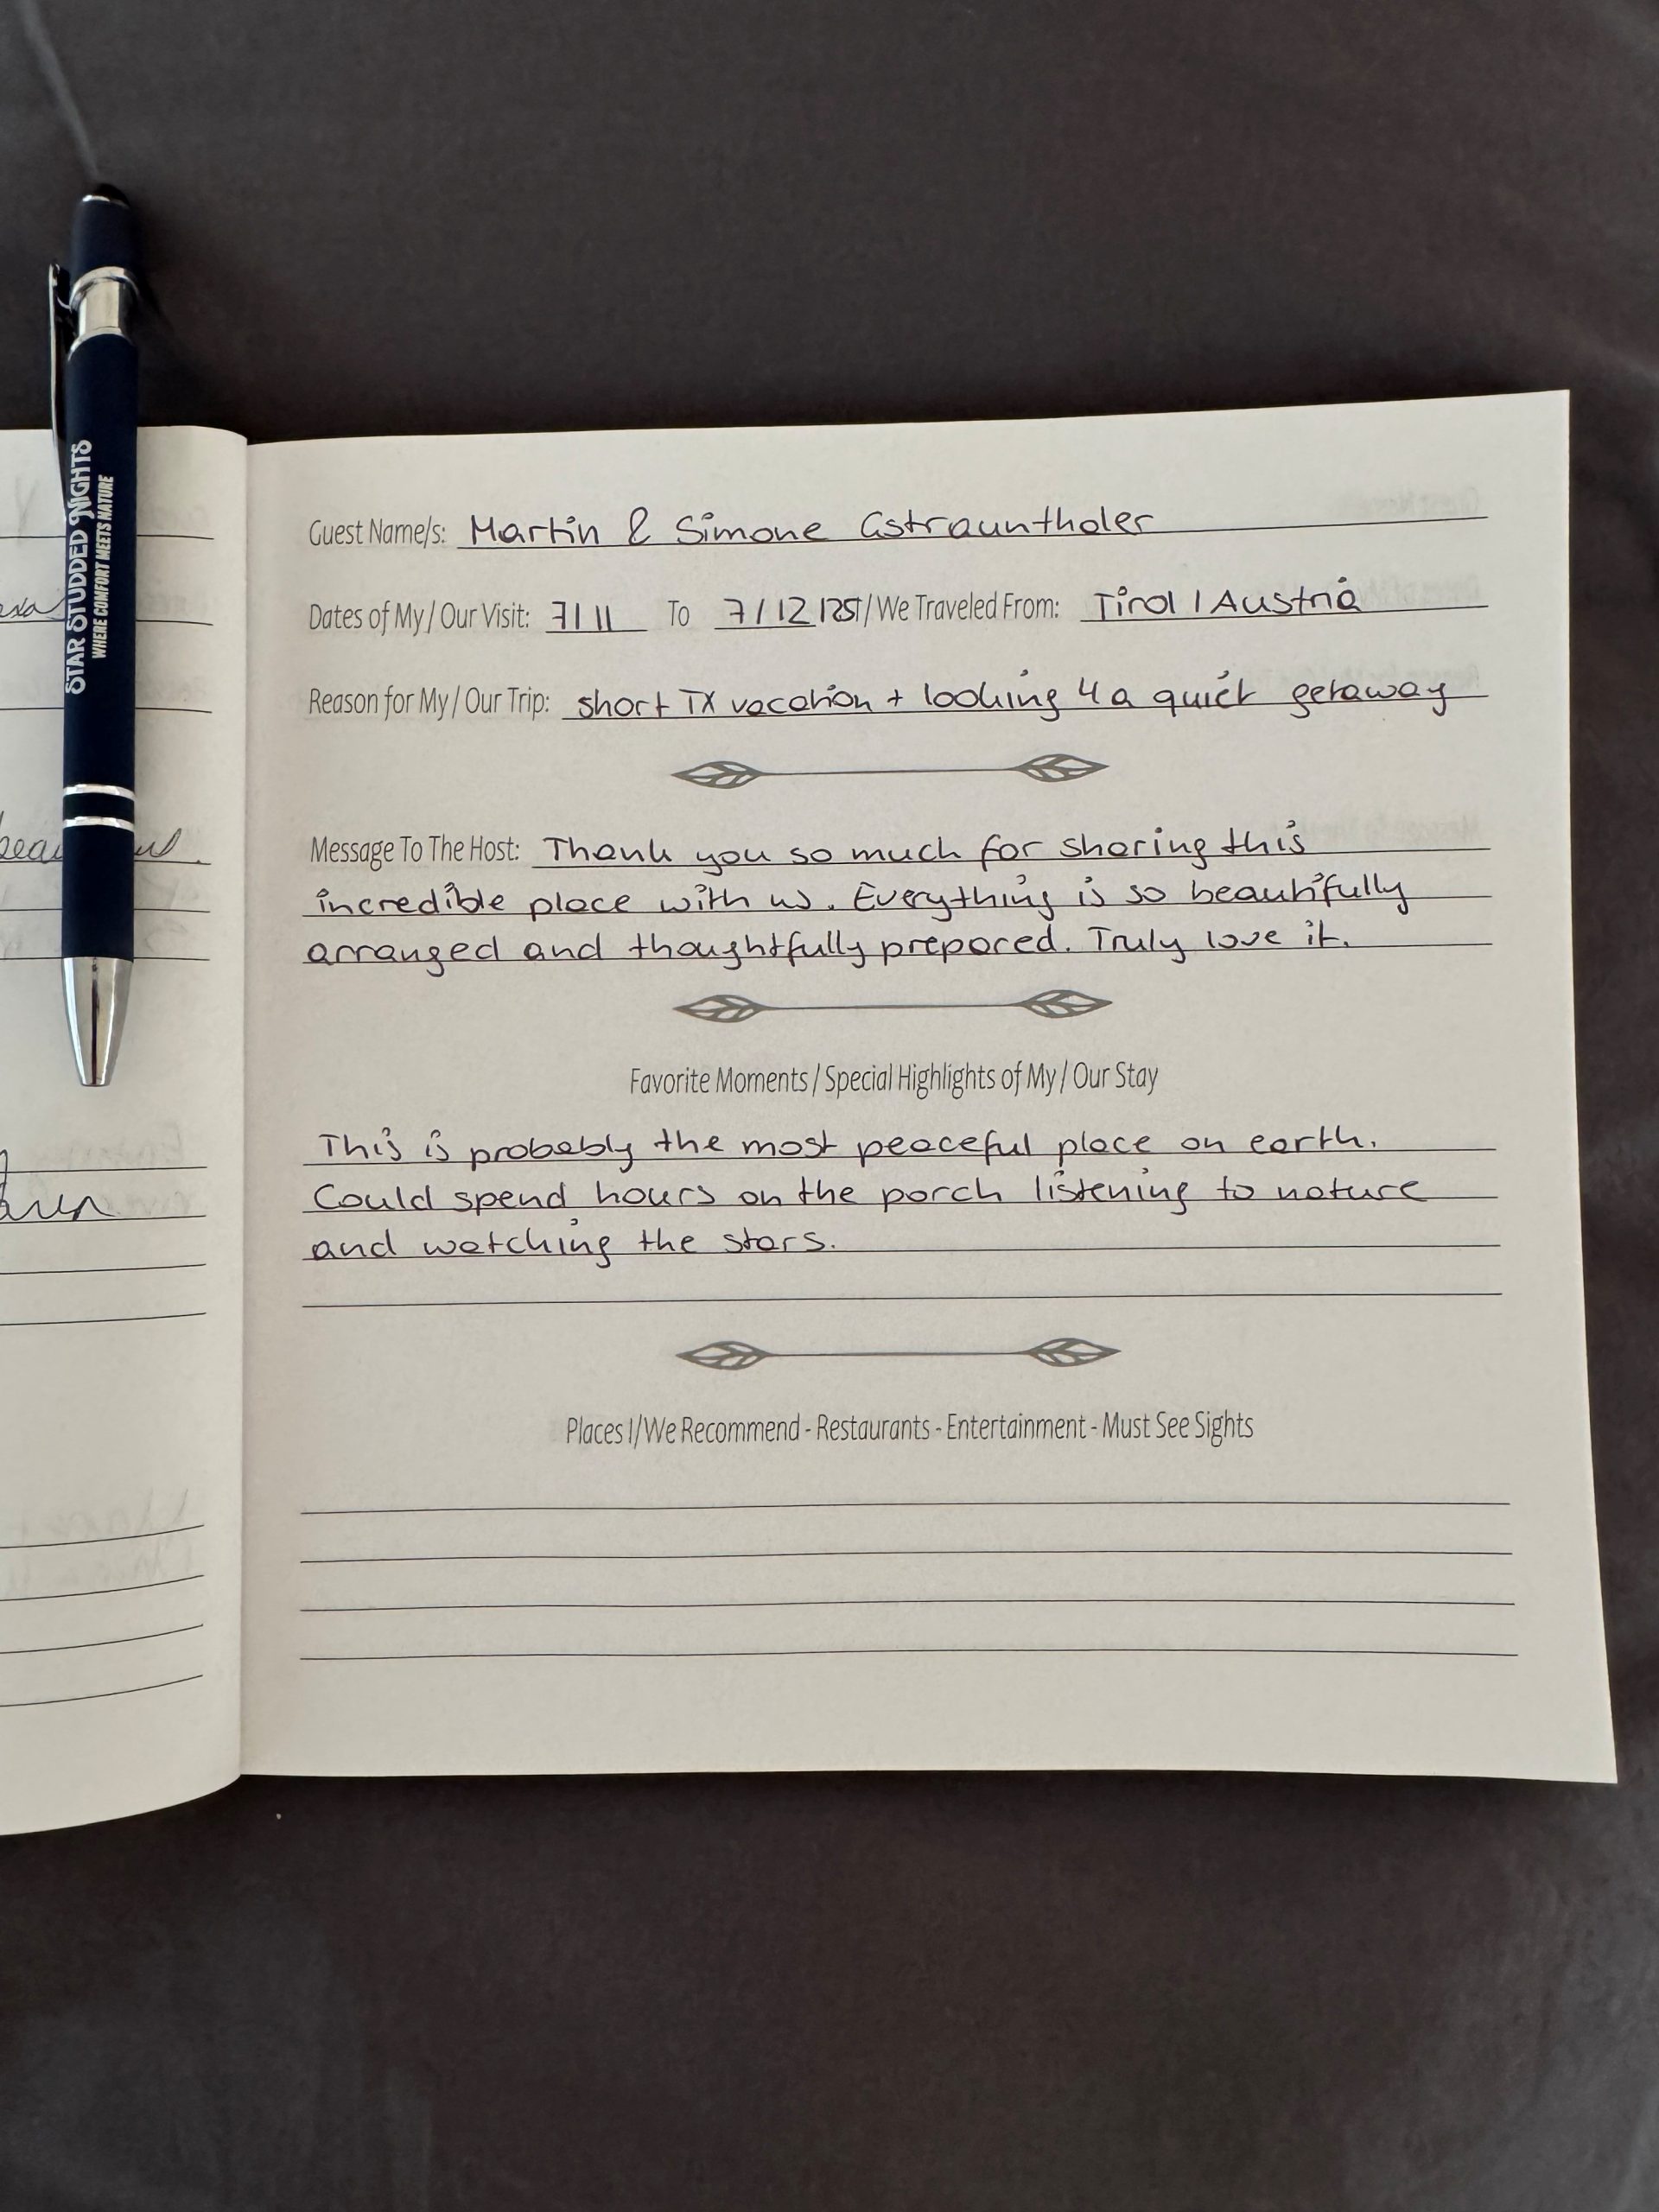 STAR STUDDED NIGHTS
WHERE COMFORT MEETS NATURE
Guest Name/s: Martin & Simone Gstraunthaler
Dates of My / Our Visit: 7/11 To 7/12/25 I / We Traveled From: Tirol / Austria
Reason for My / Our Trip: short TX vacation + looking 4 a quiet getaway
Message To The Host: Thank you so much for sharing this
incredible place with us. Everything is so beautifully
arranged and thoughtfully prepared. Truly love it.
Favorite Moments / Special Highlights of My / Our Stay
This is probably the most peaceful place on earth.
Could spend hours on the porch listening to nature
and watching the stars.
Places I/We Recommend - Restaurants - Entertainment - Must See Sights